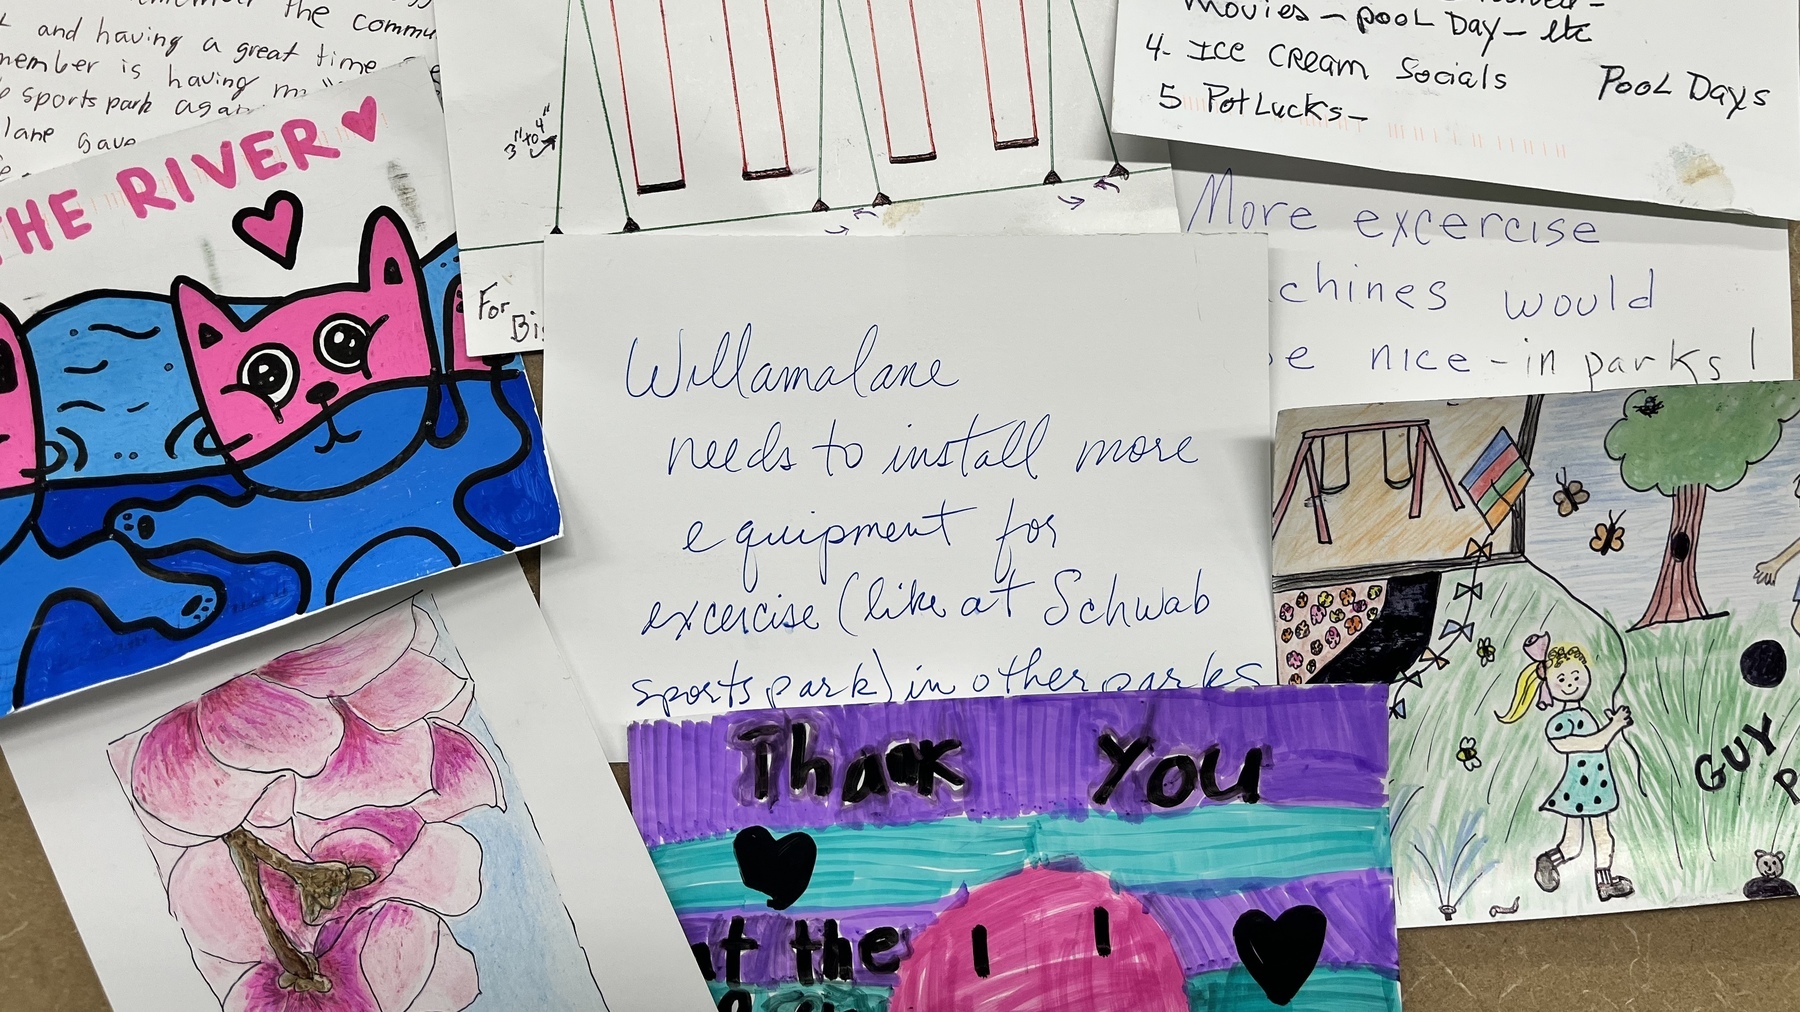 remember the commu
and having a great time
member is having my
sports park again
lane gave
THE RIVER
3" to 4"
For
movies - pool Day - etc
4- ICE CREAM Socials
5 PotLucks-
PooL Days
More excercise
chines would
be nice - in parks!
Willamalane
needs to install more
equipment for
excercise (like at Schwab
sports park) in other parks
Thank You
at the
GUY
P